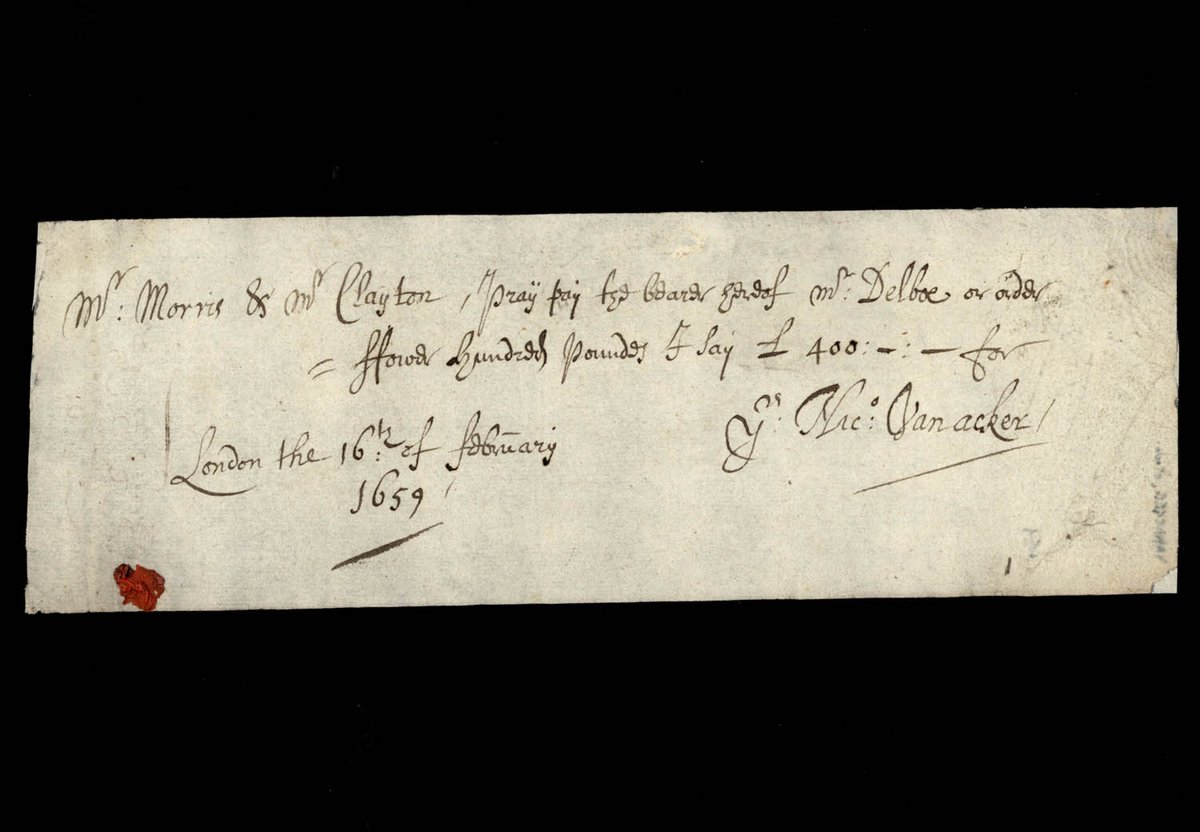 Mr: Morris & Mr Clayton, Pray pay the bearer hereof Mr: Delboe or order
= ffower Hundred Poundes I say £ 400:-:- for
Yrs: Nico: Vanacker/
London the 16th: of february
1659